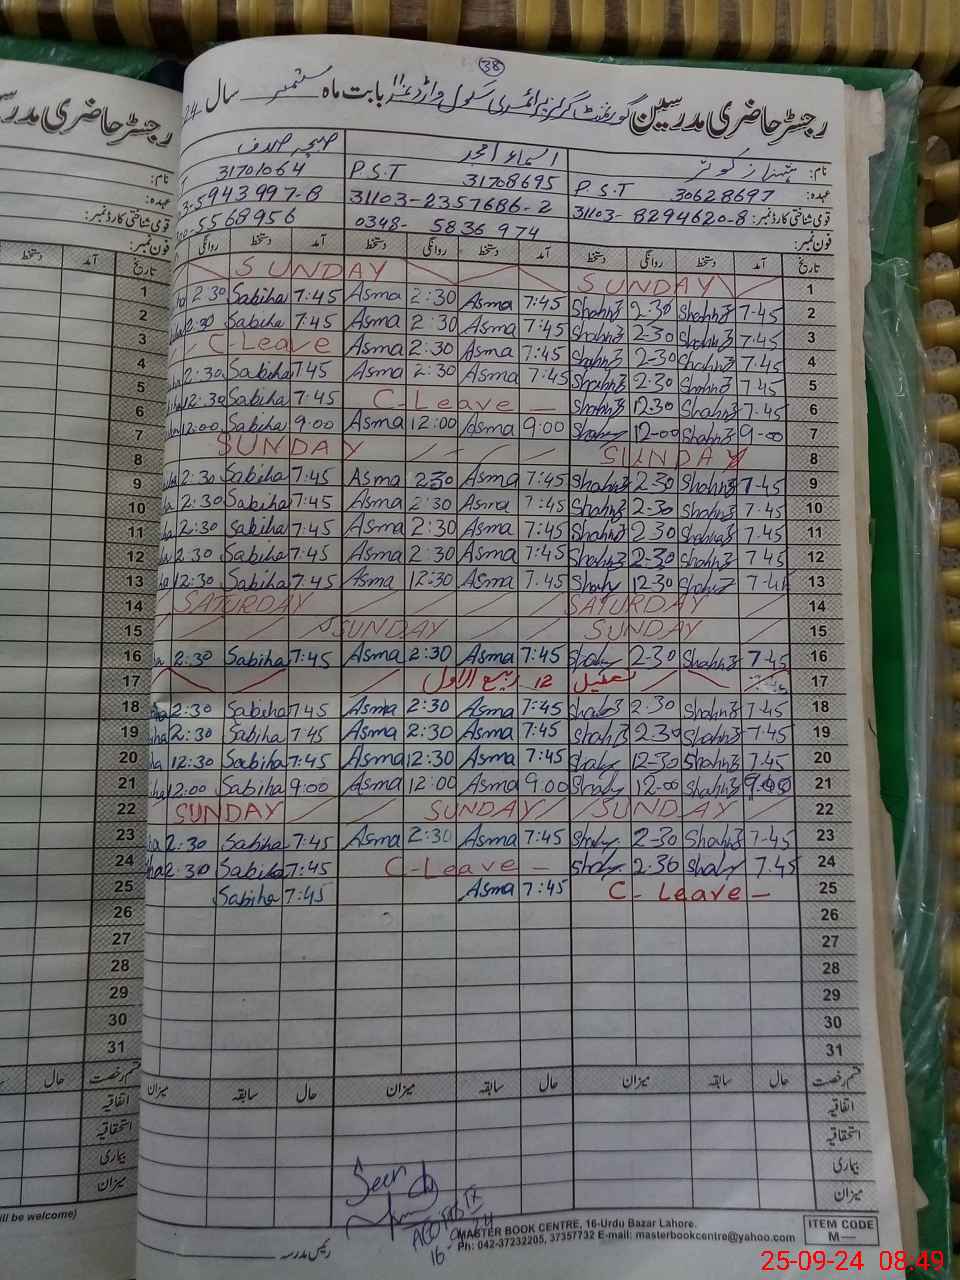 38
رجسٹر حاضری مدرسین گورنمنٹ گرلز پرائمری سکول وارڈ نمبر 11 بابت ماہ ستمبر سال 24
نام: شہناز کوثر اسماء امجد صبیحہ صدف
عہدہ: P.S.T 30628697 P.S.T 31708695 31701064
قومی شناختی کارڈ نمبر: 31103-8294620-8 31103-2357686-2 5943997-8
فون نمبر: 0348-5836974 5568956
تاریخ آمد دستخط روانگی دستخط آمد دستخط روانگی دستخط آمد دستخط روانگی
SUNDAY SUNDAY 1
2:30 Sabiha 7:45 Asma 2:30 Asma 7:45 Shahnz 2-30 Shahnz 7-45 2
2:30 Sabiha 7:45 Asma 2:30 Asma 7:45 Shahnz 2-30 Shahnz 7-45 3
C-Leave Asma 2:30 Asma 7:45 Shahnz 2-30 Shahnz 7-45 4
2:30 Sabiha 7:45 Asma 2:30 Asma 7:45 Shahnz 2-30 Shahnz 7-45 5
12:30 Sabiha 7:45 C-Leave - Shahnz 12-30 Shahnz 7-45 6
12:00 Sabiha 9:00 Asma 12:00 Asma 9:00 12-00 Shahnz 9-00 7
SUNDAY SUNDAY 8
2:30 Sabiha 7:45 Asma 2:30 Asma 7:45 Shahnz 2-30 Shahnz 7-45 9
2:30 Sabiha 7:45 Asma 2:30 Asma 7:45 Shahnz 2-30 Shahnz 7-45 10
2:30 Sabiha 7:45 Asma 2:30 Asma 7:45 Shahnz 2-30 Shahnz 7-45 11
2:30 Sabiha 7:45 Asma 2:30 Asma 7:45 Shahnz 2-30 Shahnz 7-45 12
12:30 Sabiha 7:45 Asma 12:30 Asma 7:45 12-30 7-45 13
SATURDAY SATURDAY 14
SUNDAY SUNDAY 15
2:30 Sabiha 7:45 Asma 2:30 Asma 7:45 2-30 Shahnz 7-45 16
تعطیل 12 ربیع الاول 17
2:30 Sabiha 7:45 Asma 2:30 Asma 7:45 2-30 Shahnz 7-45 18
2:30 Sabiha 7:45 Asma 2:30 Asma 7:45 2-30 Shahnz 7-45 19
12:30 Sabiha 7:45 Asma 12:30 Asma 7:45 12-30 Shahnz 7-45 20
12:00 Sabiha 9:00 Asma 12:00 Asma 9:00 12-00 Shahnz 9-00 21
SUNDAY SUNDAY SUNDAY 22
2:30 Sabiha 7:45 Asma 2:30 Asma 7:45 2-30 Shahnz 7-45 23
2:30 Sabiha 7:45 C-Leave - 2-30 7-45 24
Sabiha 7:45 Asma 7:45 C-Leave - 25
26
27
28
29
30
31
قسم رخصت حال سابقہ میزان حال سابقہ میزان حال سابقہ میزان
اتفاقیہ
استحقاقیہ
بیماری
میزان
Seen
رئیس مدرسہ
MASTER BOOK CENTRE, 16-Urdu Bazar Lahore.
Ph: 042-37232205, 37357732 E-mail: masterbookcentre@yahoo.com
ITEM CODE
M—
رجسٹر حاضری مدر
نام:
عہدہ:
قومی شناختی کارڈ نمبر:
فون نمبر:
تاریخ آمد دستخط
1
2
3
4
5
6
7
8
9
10
11
12
13
14
15
16
17
18
19
20
21
22
23
24
25
26
27
28
29
30
31
قسم رخصت حال
اتفاقیہ
استحقاقیہ
بیماری
میزان
ill be welcome)
25-09-24 08:49